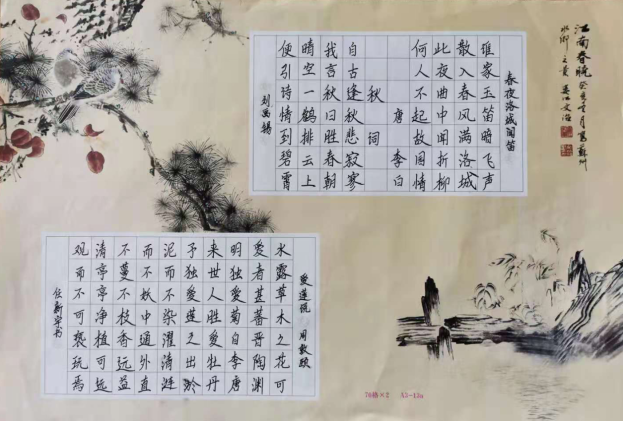 江南春晓
水乡之景
春夜洛城闻笛
谁家玉笛暗飞声
散入春风满洛城
此夜曲中闻折柳
何人不起故园情
唐 李白
秋 词
自古逢秋悲寂寥
我言秋日胜春朝
晴空一鹤排云上
便引诗情到碧霄
刘禹锡
爱莲说 周敦颐
水露草木之花可
爱者甚蕃晋陶渊
明独爱菊自李唐
来世人胜爱牡丹
予独爱莲之出淤
泥而不染濯清涟
而不妖中通外直
不蔓不枝香远益
清亭亭净植可远
观而不可亵玩焉
76格×2 A3-13a